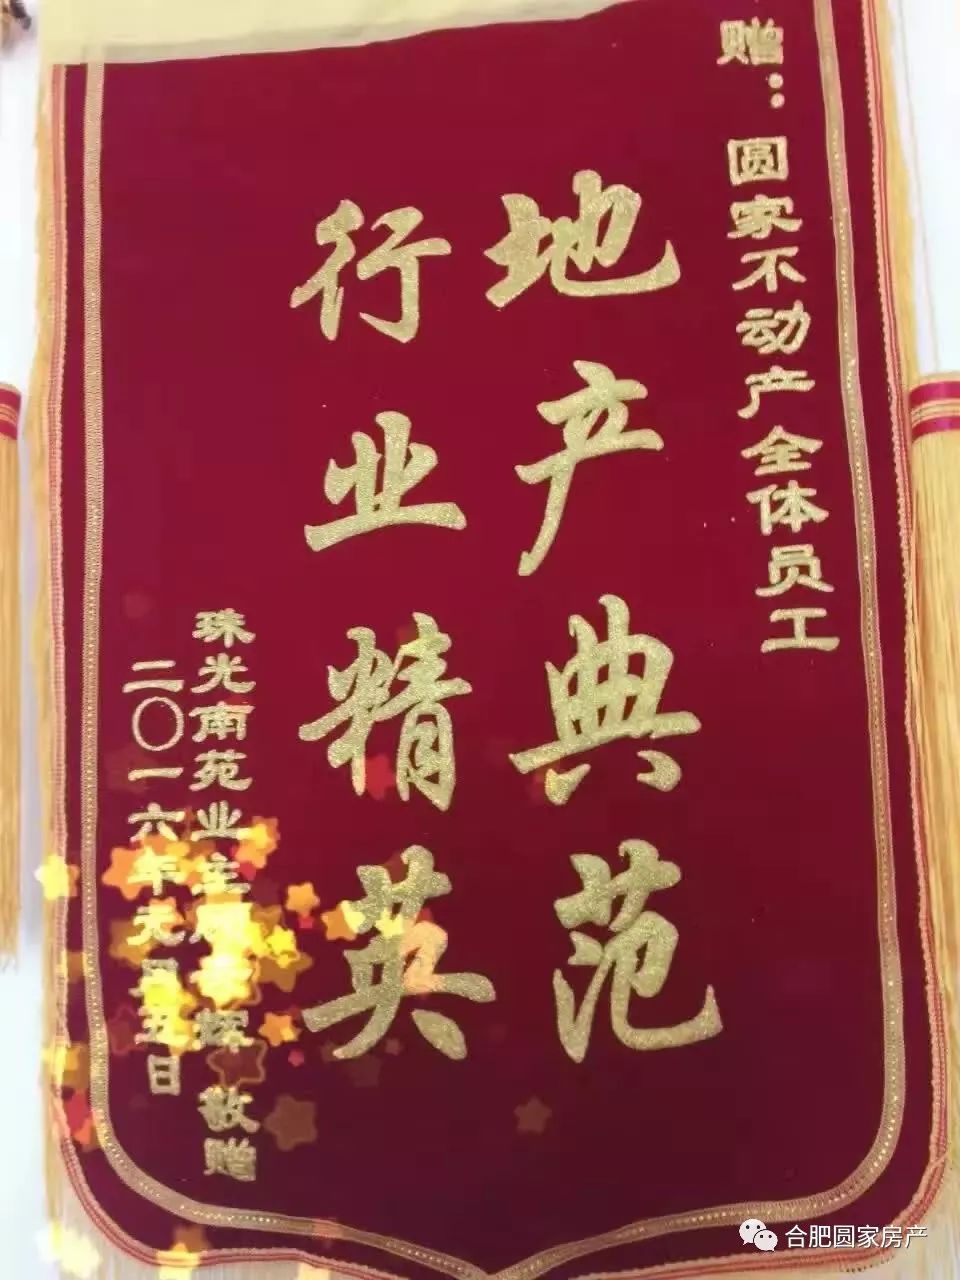 赠：圆家不动产全体员工
地产典范
行业精英
珠光南苑业主辉 敬赠
二〇一六年元月五日
合肥圆家房产